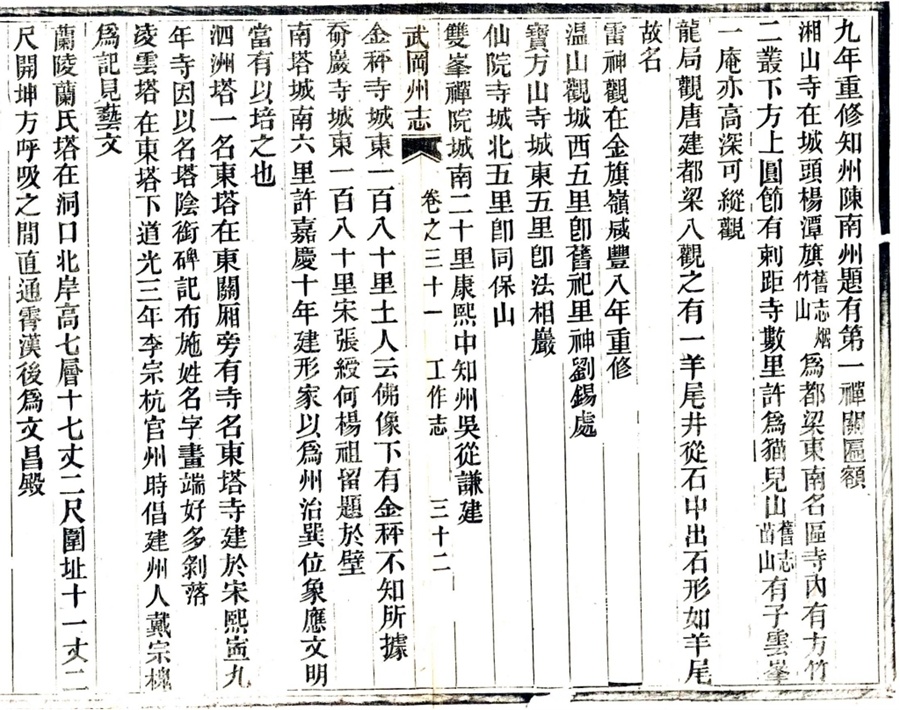 九年重修知州陳南州題有第一禪關匾額
湘山寺在城頭楊潭旗舊志烟竹山爲都梁東南名區寺內有方竹
二叢下方上圓節有刺距寺數里許爲貓兒山舊志苗山有子雲峯
一庵亦高深可縱觀
龍局觀唐建都梁八觀之有一羊尾井從石中出石形如羊尾
故名
雷神觀在金旗嶺咸豐八年重修
温山觀城西五里卽舊祀里神劉錫處
寶方山寺城東五里卽法相巖
仙院寺城北五里卽同保山
雙峯禪院城南二十里康熙中知州吳從謙建
武岡州志 卷之三十一 工作志 三十二
金秤寺城東一百八十里土人云佛像下有金秤不知所據
斫巖寺城東一百八十里宋張綬何楊祖留題於壁
南塔城南六里許嘉慶十年建形家以爲州治巽位象應文明
當有以培之也
泗洲塔一名東塔在東關厢旁有寺名東塔寺建於宋熙寧九
年寺因以名塔陰銜碑記布施姓名字畫端好多剝落
淩雲塔在東塔下道光三年李宗杭官州時倡建州人戴宗槐
爲記見藝文
蘭陵蘭氏塔在洞口北岸高七層十七丈二尺圍址十一丈二
尺開坤方呼吸之間直通霄漢後爲文昌殿